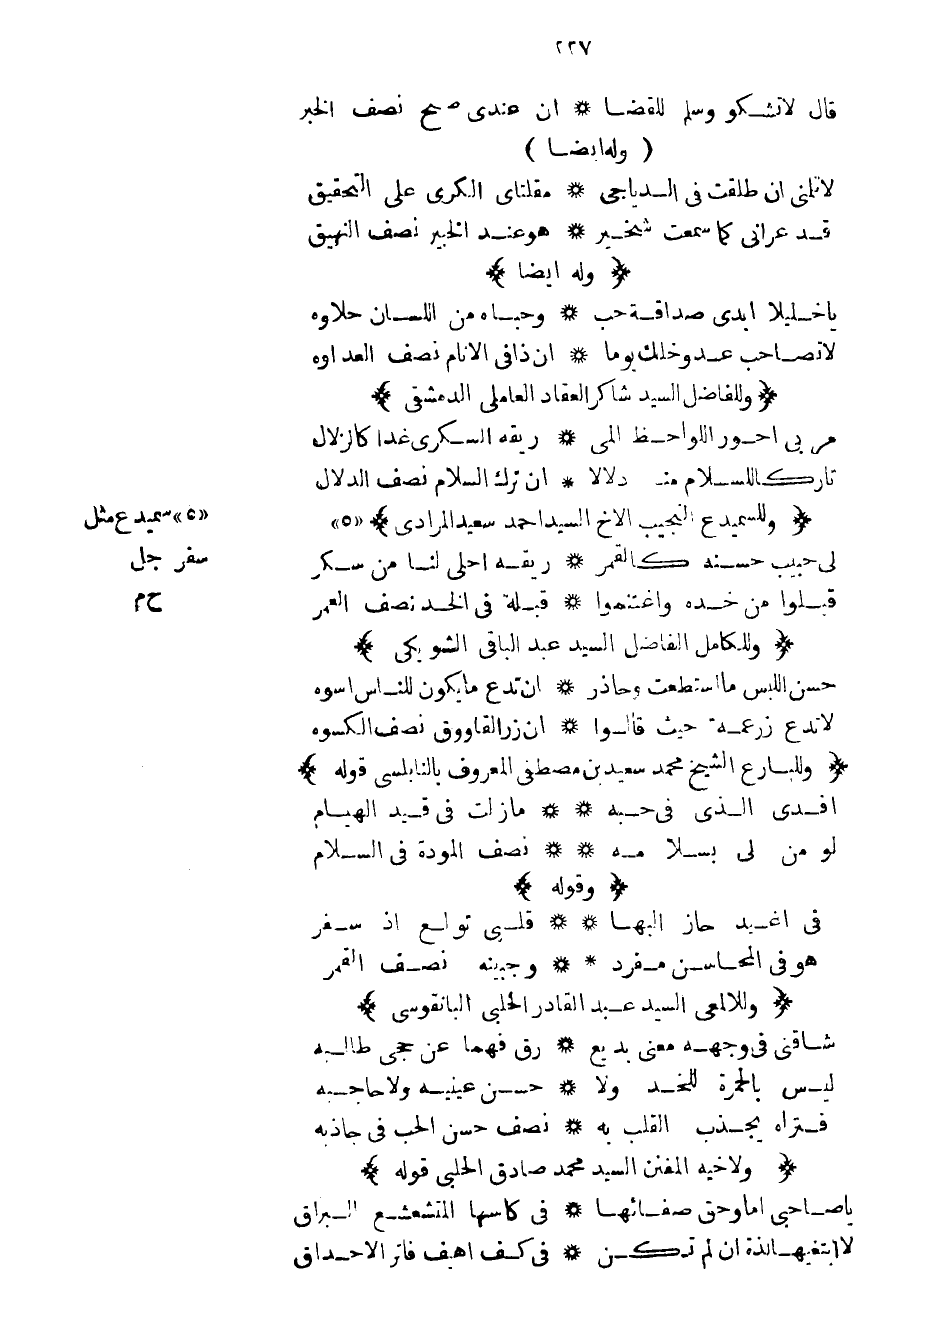 ٢٢٧
قال لاتشكو وسلم للقضا * ان عندى صح نصف الخبر
( وله ايضا )
لاتلمنى ان طلقت فى الدياجى * مقلتاى الكرى على التحقيق
قد عرانى كما سمعت شخير * هو عند الخبير نصف النهيق
﴿ وله ايضا ﴾
ياخليلا ابدى صداقة حب * وحباه من اللسان حلاوه
لاتصاحب عدو خلك يوما * ان ذا فى الانام نصف العداوه
﴿ وللفاضل السيد شاكر العقاد العاملى الدمشقى ﴾
مر بى احور اللواحظ المى * ريقه السكرى غدا كالزلال
تارك للسلام منه دلالا * ان ترك السلام نصف الدلال
﴿ وللسميدع النجيب الاخ السيد احمد سعيد المرادى ﴾ «٥»
«٥» سميدع مثل
سفر جل
ح م
لى حبيب حسنه كالقمر * ريقه احلى لنا من سكر
قبلوا من خده واغتنموا * قبلة فى الخد نصف العمر
﴿ وللكامل الفاضل السيد عبد الباقى الشويكى ﴾
حسن اللبس ما استطعت وحاذر * ان تدع مايكون للناس اسوه
لاتدع زر عمة حيث قالوا * ان زر القاووق نصف الكسوه
﴿ وللبارع الشيخ محمد سعيد بن مصطفى المعروف بالنابلسى قوله ﴾
افدى الذى فى حبه * * مازلت فى قيد الهيام
لو من لى بسلامه * * نصف المودة فى السلام
﴿ وقوله ﴾
فى اغيد حاز البها * * قلبى تولع اذ سفر
هو فى المحاسن مفرد * * وجبينه نصف القمر
﴿ وللالمعى السيد عبد القادر الحلبى البانقوسى ﴾
شاقنى فى وجهه معنى بديع * رق فهما عن حجى طالبه
ليس بالحمرة للخد ولا * حسن عينيه ولا حاجبه
فتراه يجذب القلب به * نصف حسن الحب فى جاذبه
﴿ ولاخيه المفنن السيد محمد صادق الحلبى قوله ﴾
ياصاحبى اما وحق صفائها * فى كاسها المتشعشع البراق
لا ابتغيها لذة ان لم تكن * فى كف اهيف فاتر الاحداق